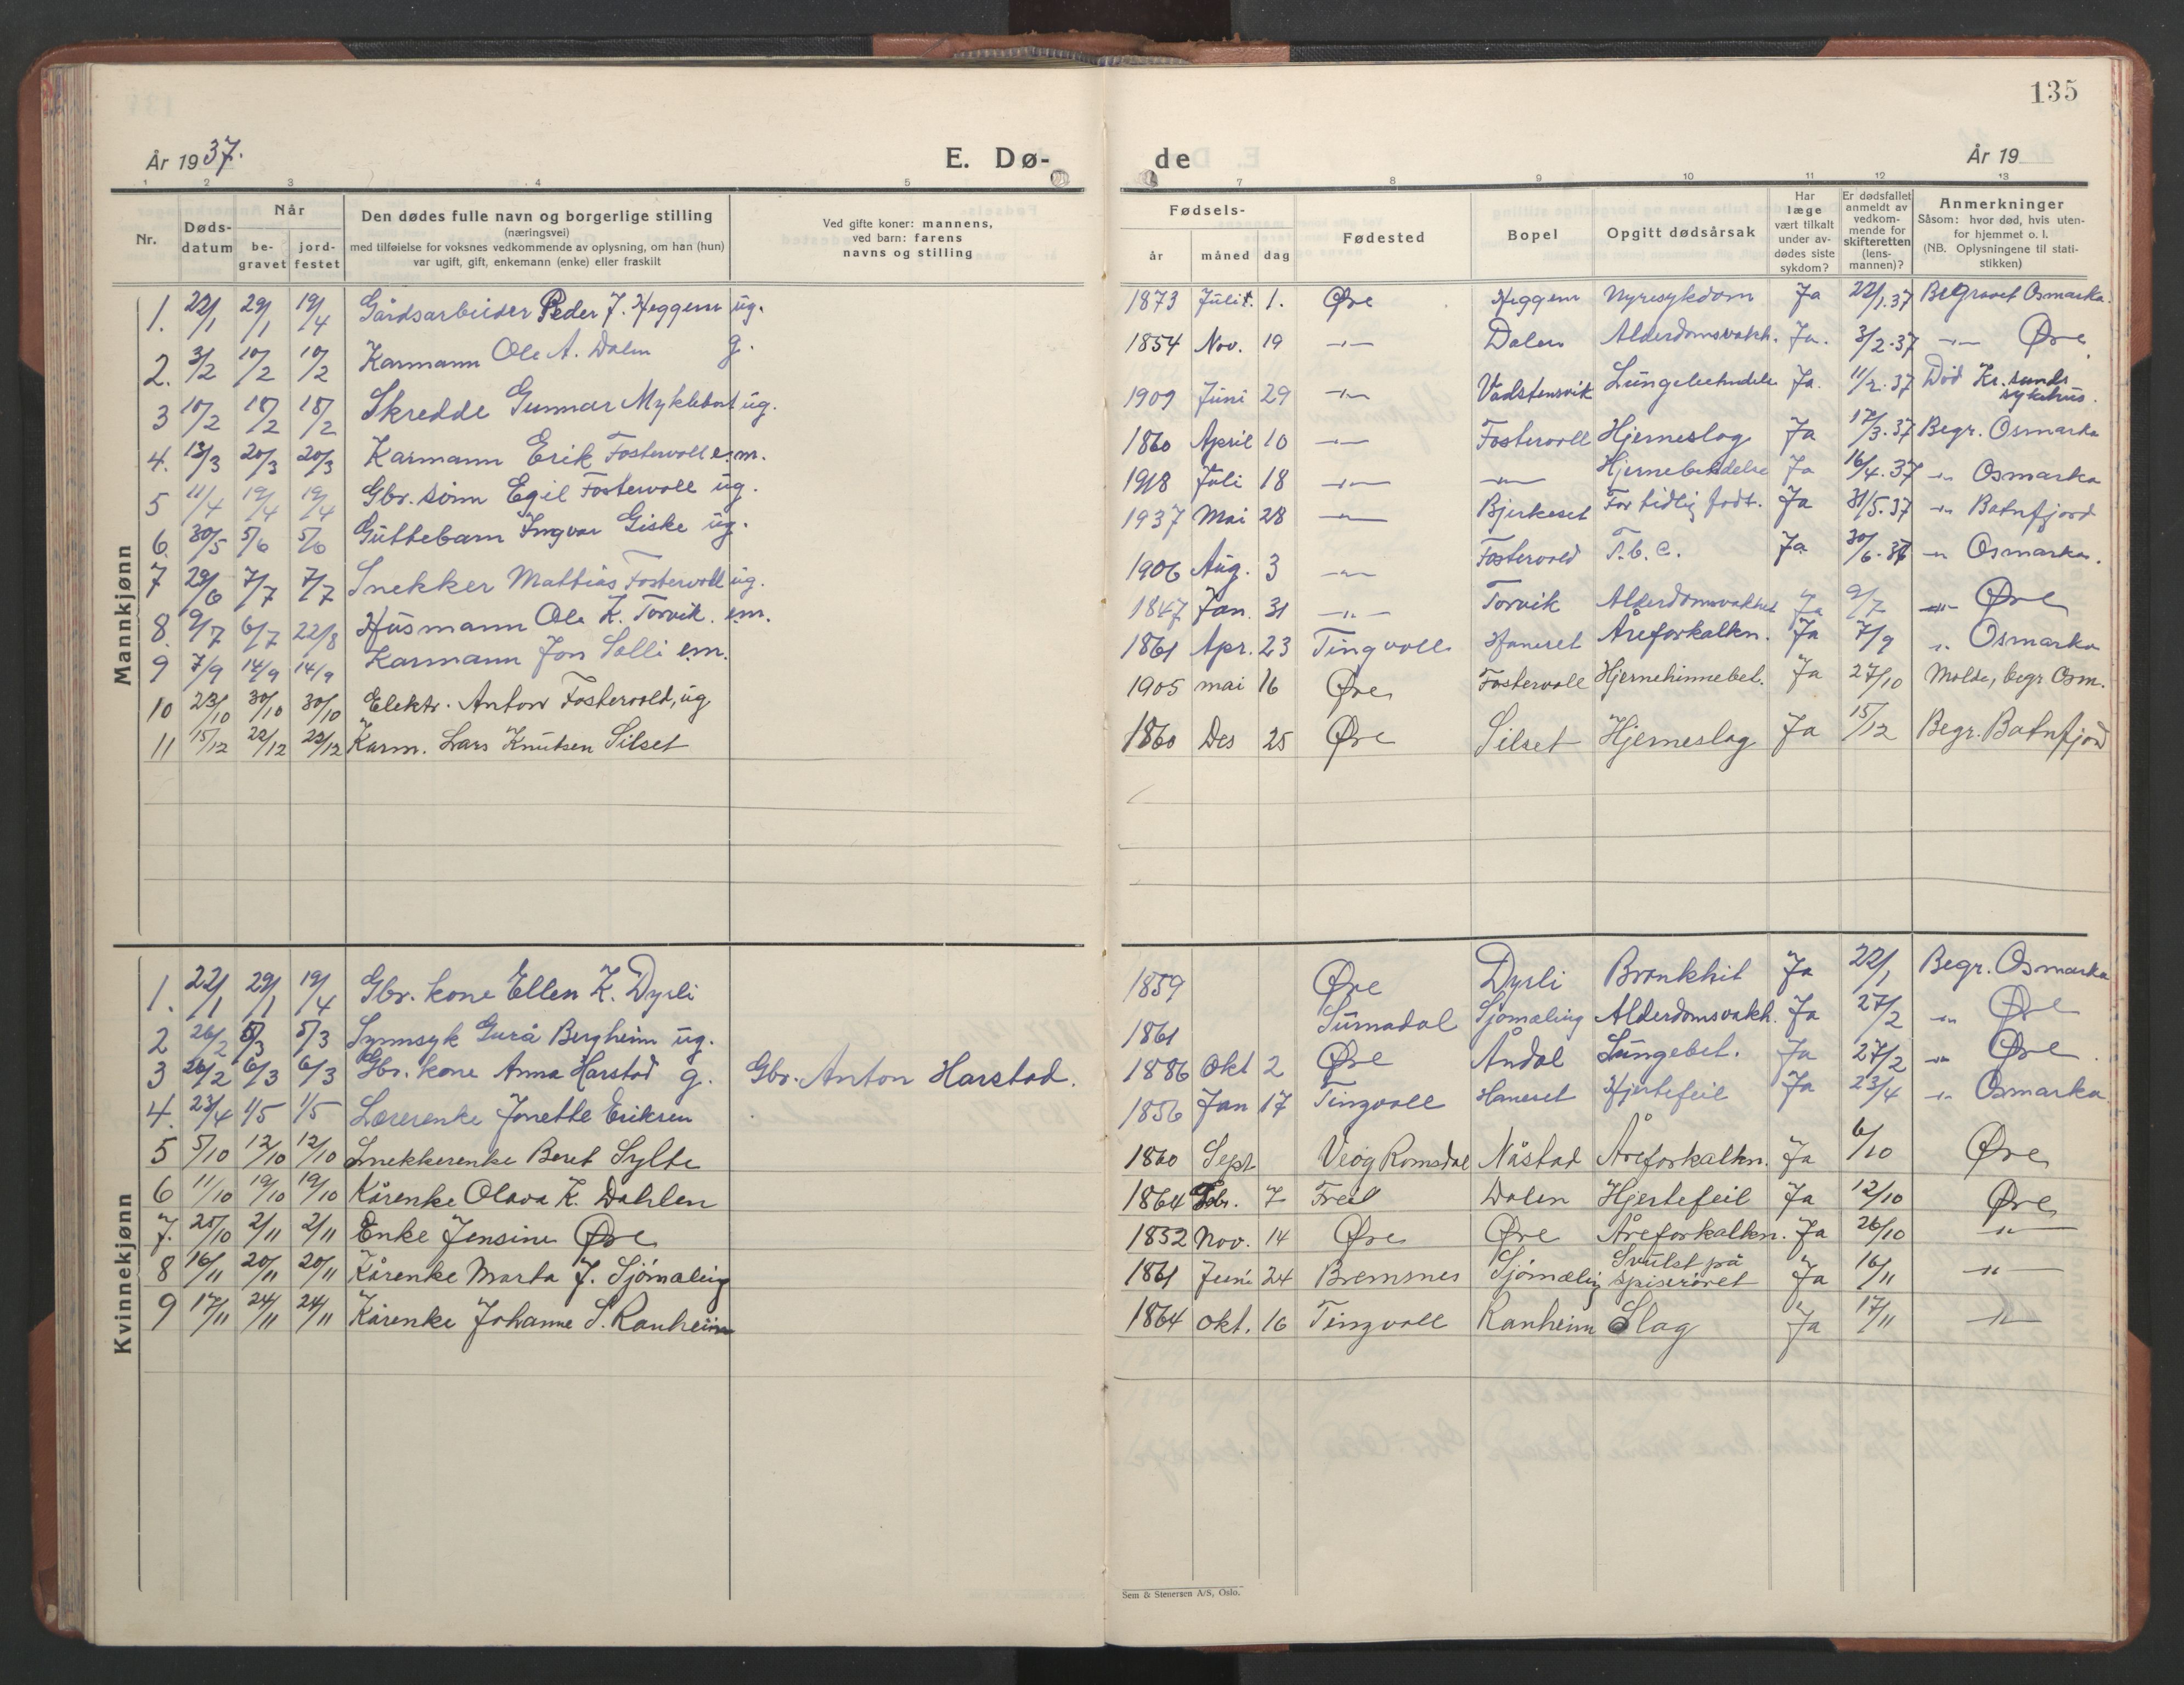 135
År 1937.
E. Dø-
de
År 19
1 2 3 4 5
7 8 9 10 11 12 13
Nr.
Døds-
datum
Når
be-
gravet
jord-
festet
Den dødes fulle navn og borgerlige stilling
(næringsvei)
med tilføielse for voksnes vedkommende av oplysning, om han (hun)
var ugift, gift, enkemann (enke) eller fraskilt
Ved gifte koner: mannens,
ved barn: farens
navns og stilling
Fødsels-
år måned dag
Fødested
Bopel
Opgitt dødsårsak
Har
læge
vært tilkalt
under av-
dødes siste
sykdom?
Er dødsfallet
anmeldt av
vedkom-
mende for
skifteretten
(lens-
mannen)?
Anmerkninger
Såsom: hvor død, hvis uten-
for hjemmet o. l.
(NB. Oplysningene til stati-
stikken)
Mannkjønn
1. 22/1 29/1 19/4 Gårdsarbeider Peder J. Heggem ug. 1873 Juli 1. Øre Heggem Nyresykdom Ja 22/1.37 Begravet Osmarka.
2. 3/2 10/2 10/2 Karmann Ole A. Dalen g. 1854 Nov. 19 -"- Dalen Alderdomsvakh. Ja. 3/2.37 -"- Øre
3 10/2 18/2 18/2 Skredde Gunnar Myklebust ug. 1909 Juni 29 -"- Vadstensvik Lungebetendelse Ja. 11/2.37 Död Kr.sunds sykehus.
4. 13/3 20/3 20/3 Karmann Erik Fostervoll e.m. 1860 April 10 -"- Fostervoll Hjerneslag Ja 17/3.37 Begr. Osmarka
5 11/4 19/4 19/4 Gbr. sønn Egil Fostervoll ug. 1918 Juli 18 -"- -"- Hjernebetendelse Ja 16/4.37 -"- Osmarka
6. 30/5 5/6 5/6 Guttebarn Ingvar Giske ug. 1937 Mai 28 -"- Bjerkeset For tidlig født. Ja 31/5.37 -"- Batnfjord
7 29/6 7/7 7/7 Snekker Mattias Fostervoll ug. 1906 Aug. 3 -"- Fostervold T.b.c. Ja 30/6.37 -"- Osmarka.
8. 9/7 6/7 22/8 Husmann Ole K. Torvik. em. 1847 Jan. 31 -"- Torvik Alderdomsvakhet Ja 9/7 -"- Øre
9 7/9 14/9 14/9 Karmann Jon Solli em. 1861 Apr. 23 Tingvoll Haneset Åreforkalkn. Ja 7/9 -"- Osmarka
10 23/10 30/10 30/10 Elektr. Anton Fostervold, ug 1905 mai 16 Øre Fostervoll Hjernehinnebet. Ja 27/10 Molde, begr Osm.
11 15/12 22/12 22/12 Karm. Lars Knutsen Silset 1860 Des 25 Øre Silset Hjerneslag Ja 15/12 Begr. Batnfjord
Kvinnekjønn
1. 22/1 29/1 19/4 Gbr. kone Ellen K. Dyrli 1859 Øre Dyrli Bronkhit Ja 22/1 Begr. Osmarka
2 26/2 5/3 5/3 Synnsyk Gurå Bergheim ug. 1861 Surnadal Sjømæling Alderdomsvakh. Ja 27/2 -"- Øre
3 26/2 6/3 6/3 Gbr. kone Anna Harstad g. Gbr. Anton Harstad. 1886 Okt 2 Øre Åndal Lungebet. Ja 27/2 -"- Øre.
4. 23/4 1/5 1/5 Lærerenke Jonette Eriksen 1856 Jan 17 Tingvoll Haneset Hjertefeil Ja 23/4 -"- Osmarka
5 5/10 12/10 12/10 Snekkerenke Beret Sylte 1860 Sept Veøy Romsdal Nåstad Åreforkalkn. Ja 6/10 Øre
6 11/10 19/10 19/10 Kårenke Olava K. Dahlen 1864 Febr. 7 Frei Dalen Hjertefeil Ja 12/10 Øre
7. 25/10 2/11 2/11 Enke Jensine Øre 1852 Nov. 14 Øre Øre Åreforkalkn. Ja 26/10 -"-
8 16/11 20/11 20/11 Kårenke Marta J. Sjömæling 1861 Juni 24 Bremsnes Sjömæling Svulst på spiseröret Ja 16/11 -"-
9 17/11 24/11 24/11 Kårenke Johanne S. Ranheim 1864 Okt. 16 Tingvoll Ranheim Slag Ja 17/11 -"-
Sem & Stenersen A/S, Oslo.